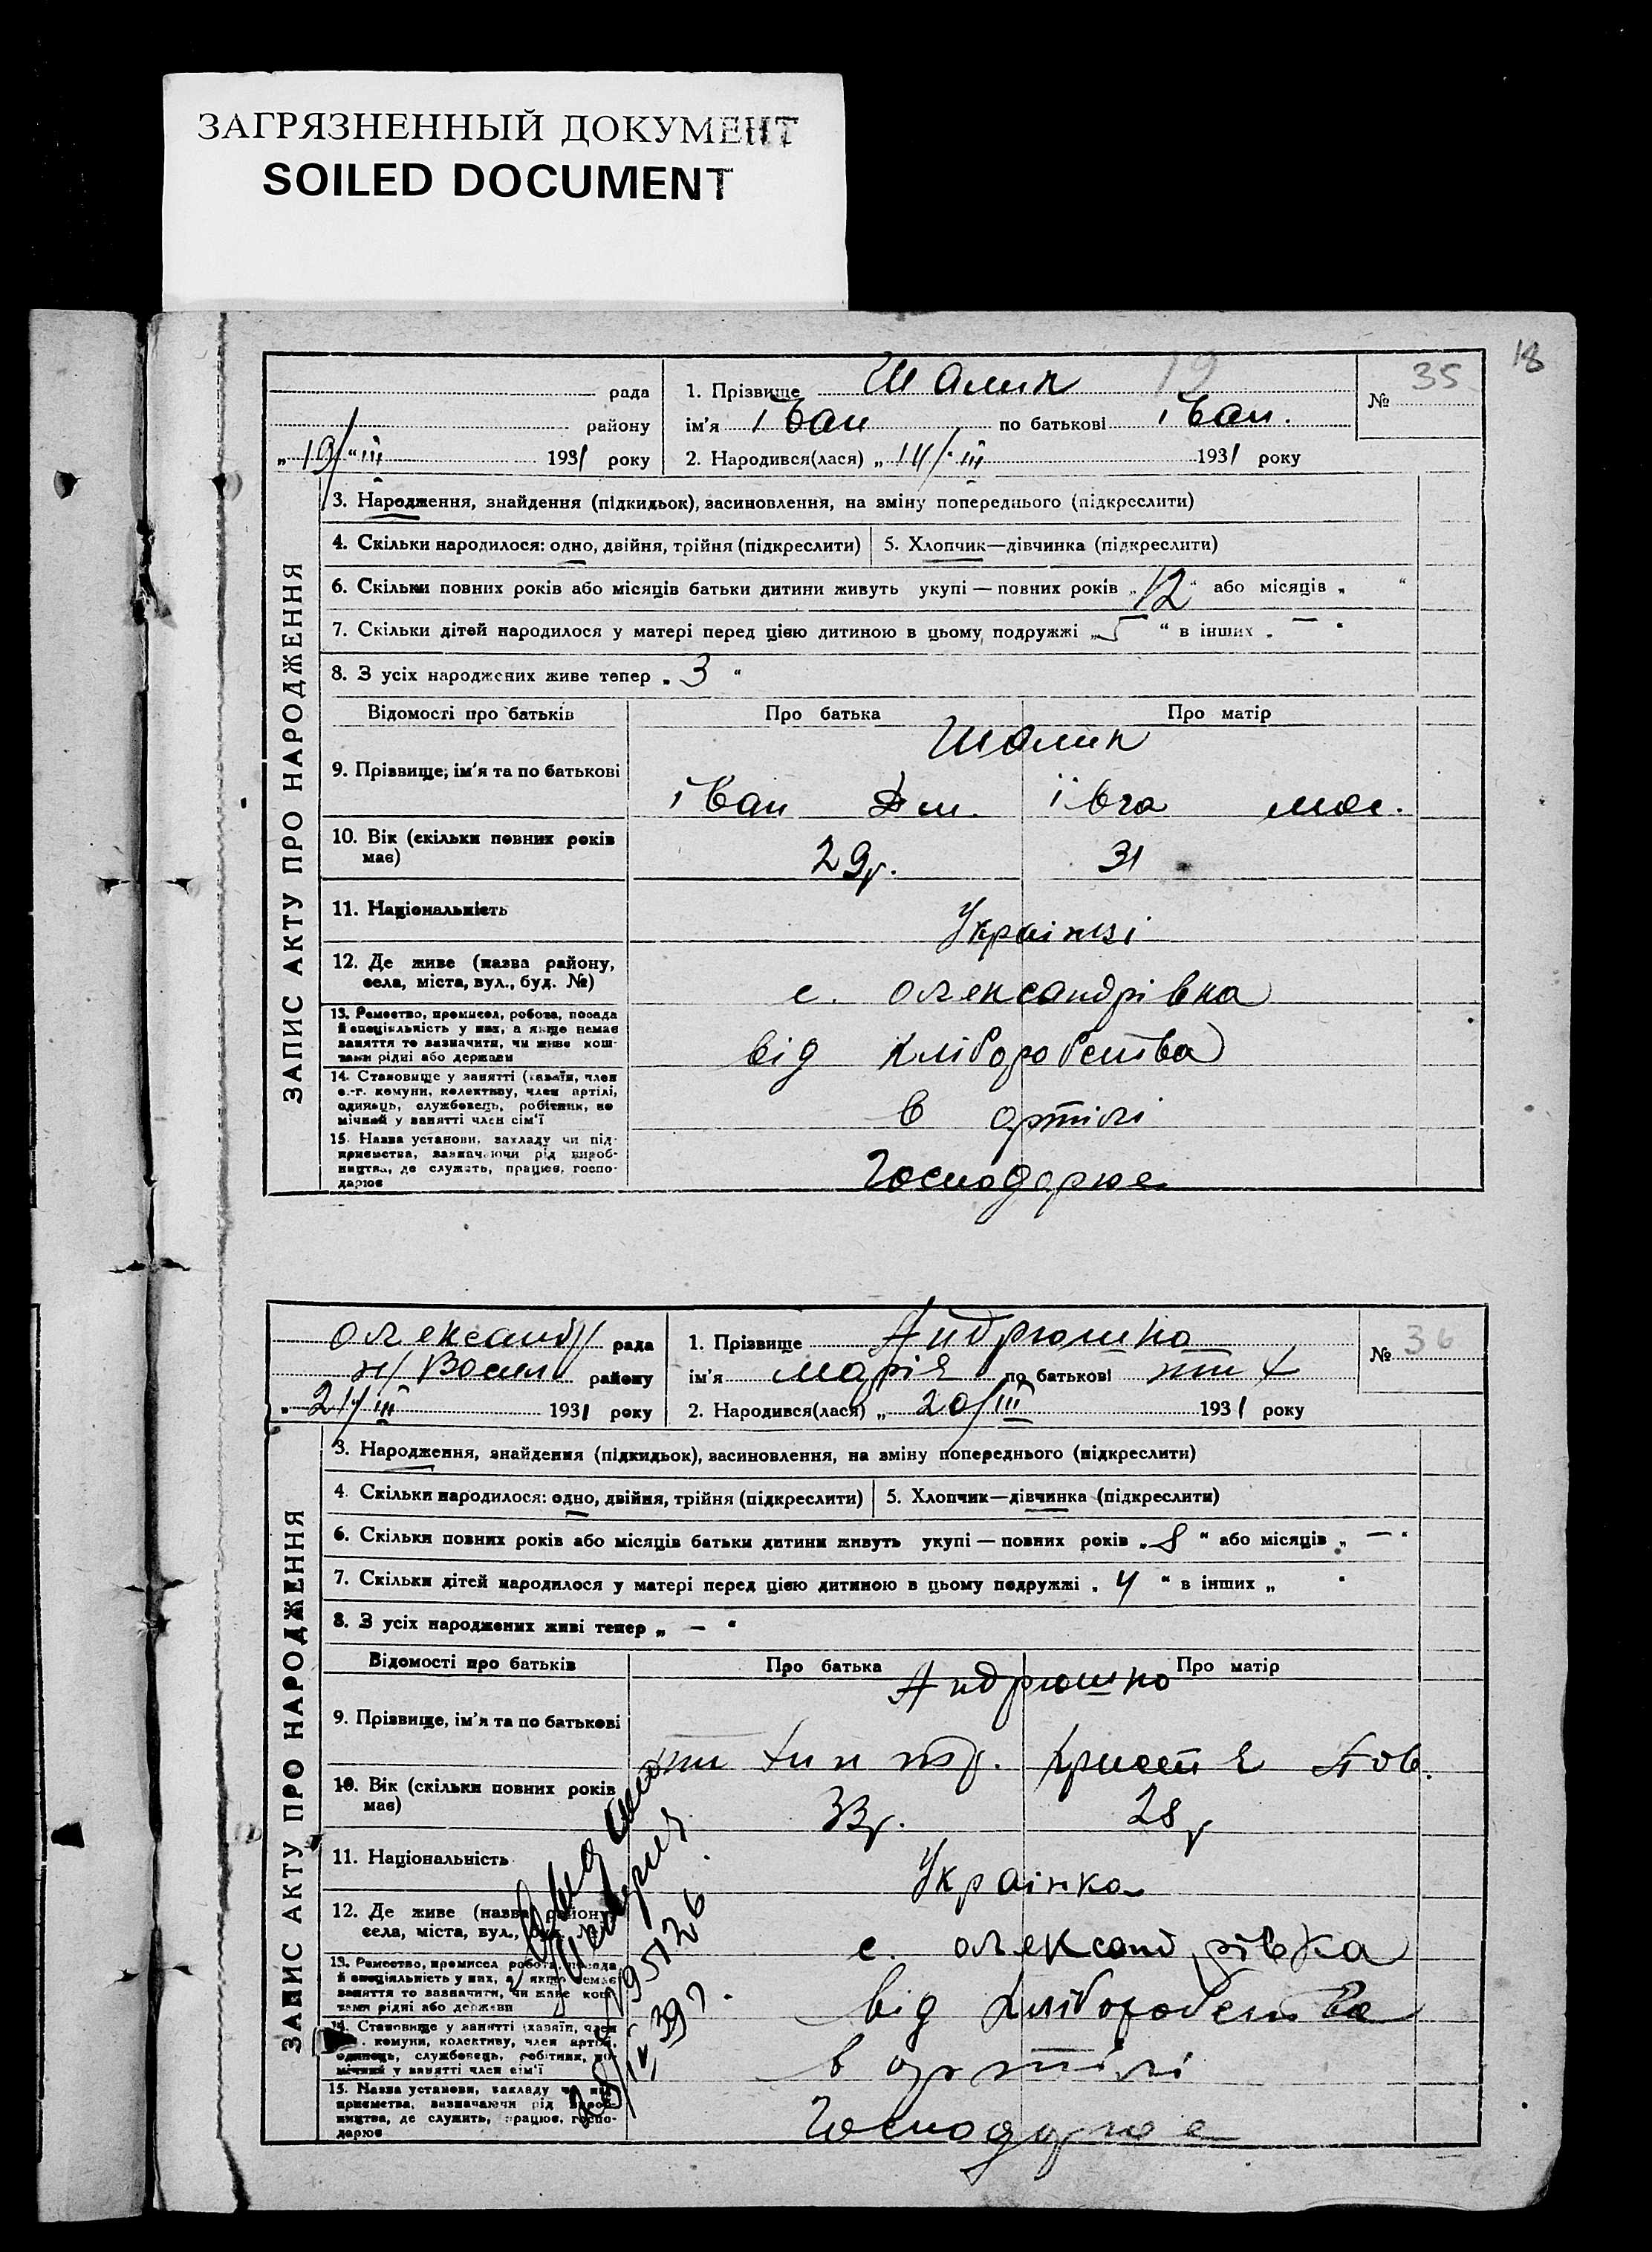 ЗАГРЯЗНЕННЫЙ ДОКУМЕНТ
SOILED DOCUMENT
18
рада
району
„19/"III 1931 року
1. Прізвище Шалип 19
ім'я іван по батькові іван.
2. Народився(лася) „14/III 1931 року
№ 35
ЗАПИС АКТУ ПРО НАРОДЖЕННЯ
3. Народження, знайдення (підкидьок), засиновлення, на зміну попереднього (підкреслити)
4. Скільки народилося: одно, двійня, трійня (підкреслити) 5. Хлопчик—дівчинка (підкреслити)
6. Скільки повних років або місяців батьки дитини живуть укупі — повних років „12" або місяців „ "
7. Скільки дітей народилося у матері перед цією дитиною в цьому подружжі „5" в інших „—"
8. З усіх народжених живе тепер „3"
Відомості про батьків Про батька Про матір
Шалип
9. Прізвище, ім'я та по батькові
іван Дм. івга
10. Вік (скільки повних років має) 29р. 31
11. Національність
Українці
12. Де живе (назва району, села, міста, вул., буд. №)
с. олександрівка
13. Ремество, промисел, робота, посада й спеціяльність у них, а якщо немає заняття то зазначити, чи живе коштами рідні або держави
від хліборобства
14. Становище у занятті (хазяїн, член с.-г. комуни, колективу, член артілі, одинець, службовець, робітник, помічний у занятті член сім'ї
в артілі
15. Назва установи, закладу чи підприємства, зазначаючи рід виробництва, де служить, працює, господарює
Господарює
олександ// рада
н/Васил району
„21/III 1931 року
1. Прізвище Андрюшко
ім'я марія по батькові
2. Народився(лася) „20/III 1931 року
№ 36
ЗАПИС АКТУ ПРО НАРОДЖЕННЯ
3. Народження, знайдення (підкидьок), засиновлення, на зміну попереднього (підкреслити)
4. Скільки народилося: одно, двійня, трійня (підкреслити) 5. Хлопчик—дівчинка (підкреслити)
6. Скільки повних років або місяців батьки дитини живуть укупі — повних років „8" або місяців „—"
7. Скільки дітей народилося у матері перед цією дитиною в цьому подружжі „4" в інших „ "
8. З усіх народжених живі тепер „—"
Відомості про батьків Про батька Про матір
Андрюшко
9. Прізвище, ім'я та по батькові
христя Пав.
10. Вік (скільки повних років має) 33р. 28р
11. Національність
Українка
12. Де живе (назва району, села, міста, вул., буд. №)
с. олександрівка
13. Ремество, промисел, робота, посада й спеціяльність у них, а якщо немає заняття то зазначити, чи живе коштами рідні або держави
від хліборобства
14. Становище у занятті (хазяїн, член с.-г. комуни, колективу, член артілі, одинець, службовець, робітник, помічний у занятті член сім'ї
в артілі
15. Назва установи, закладу чи підприємства, зазначаючи рід виробництва, де служить, працює, господарює
Господарює